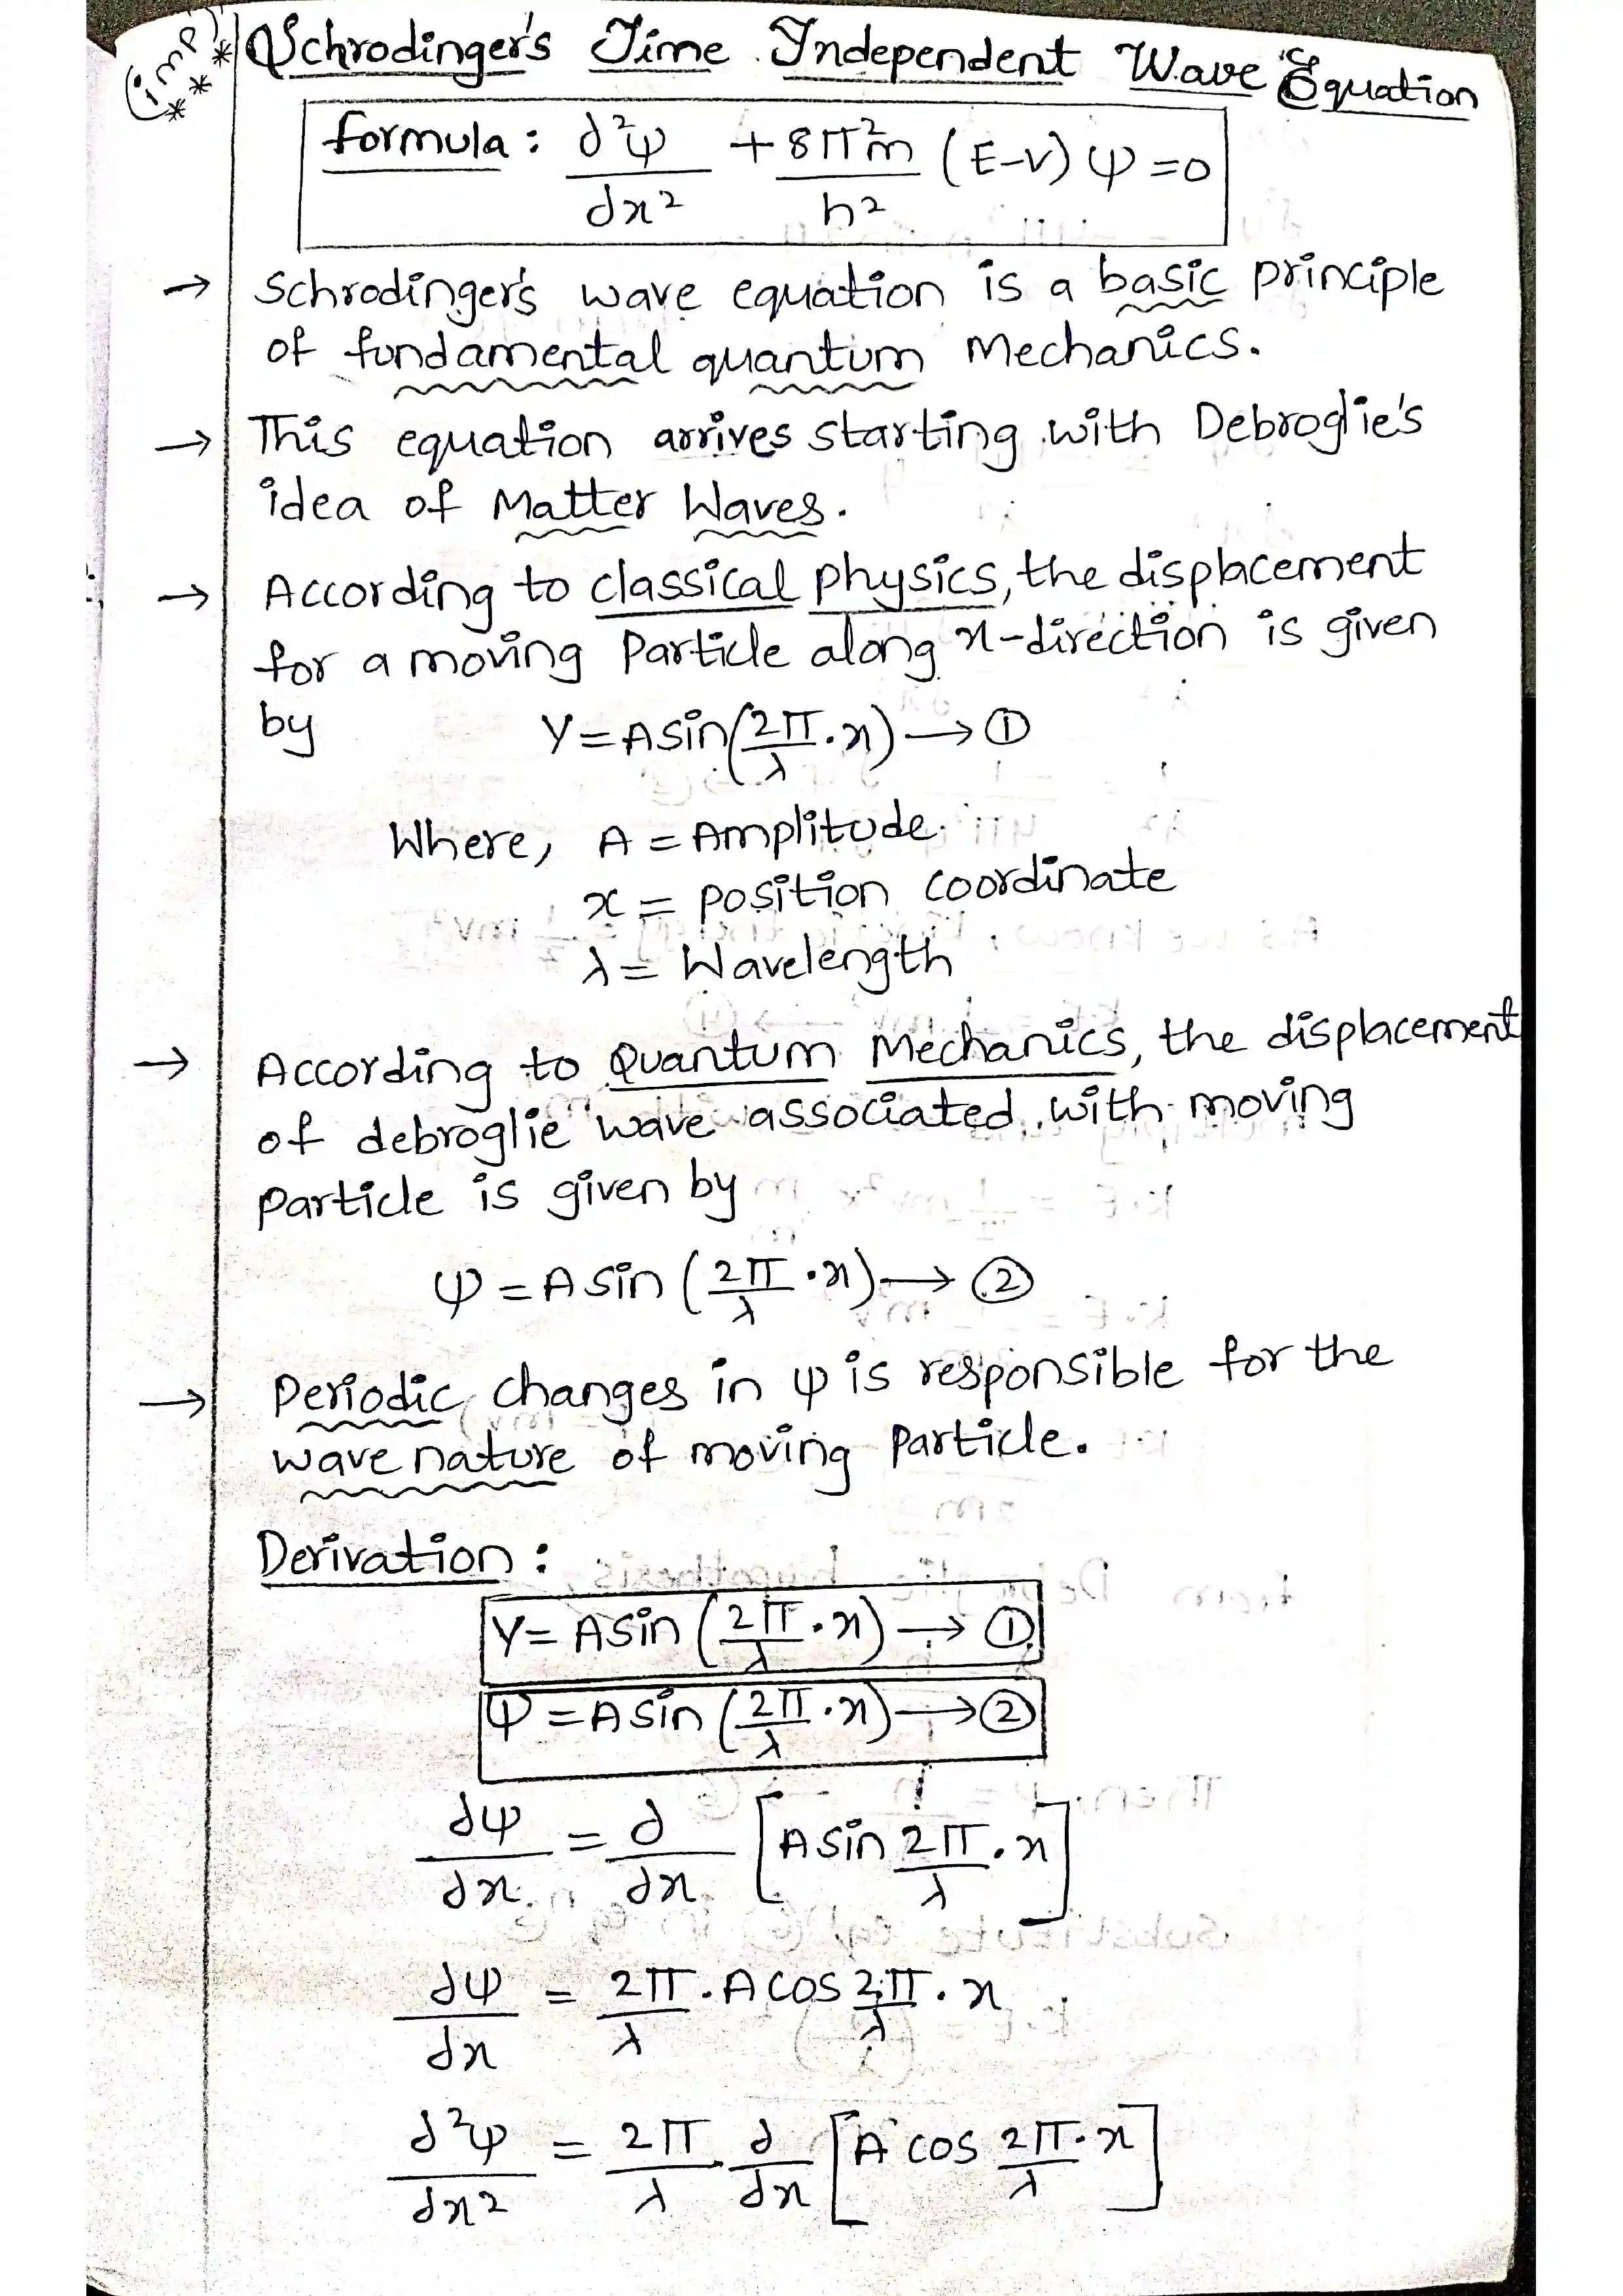 (imp) ***
Schrodinger's Time Independent Wave Equation
formula: d²ψ/dx² + 8π²m/h² (E-V) ψ = 0
→ Schrodinger's wave equation is a basic principle
of fundamental quantum Mechanics.
→ This equation arrives starting with Debroglie's
idea of Matter Waves.
→ According to classical physics, the displacement
for a moving Particle along x-direction is given
by Y = A sin(2π/λ · x) → ①
Where, A = Amplitude
x = position coordinate
λ = Wavelength
→ According to Quantum Mechanics, the displacement
of debroglie wave associated with moving
particle is given by
ψ = A sin (2π/λ · x) → ②
→ Periodic changes in ψ is responsible for the
wave nature of moving Particle.
Derivation:
Y = A sin (2π/λ · x) → ①
ψ = A sin (2π/λ · x) → ②
dψ/dx = d/dx [A sin 2π/λ · x]
dψ/dx = 2π/λ · A cos 2π/λ · x
d²ψ/dx² = 2π/λ · d/dx [A cos 2π/λ · x]